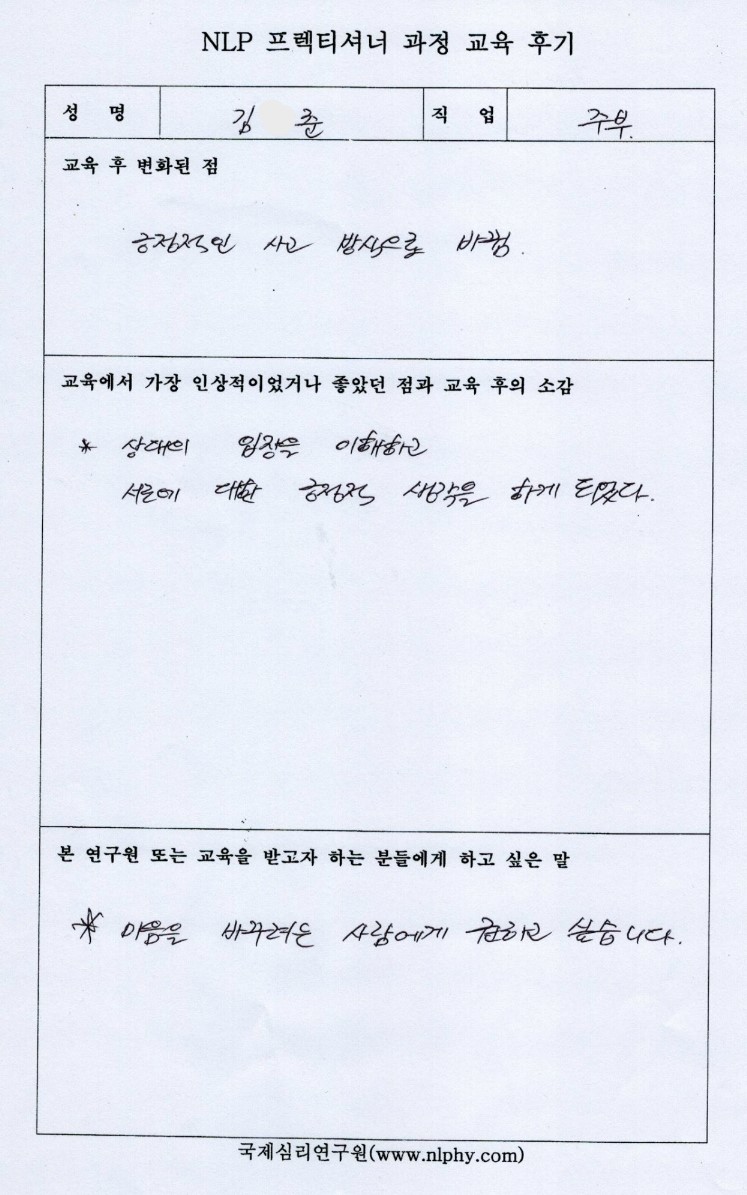 NLP 프렉티셔너 과정 교육 후기
성 명 김 준 직 업 주부.
교육 후 변화된 점
긍정적인 사고 방식으로 바뀜.
교육에서 가장 인상적이었거나 좋았던 점과 교육 후의 소감
* 상대의 입장을 이해하고
서로에 대한 긍정적 생각을 하게 되었다.
본 연구원 또는 교육을 받고자 하는 분들에게 하고 싶은 말
* 마음을 바꾸려는 사람에게 권하고 싶습니다.
국제심리연구원(www.nlphy.com)